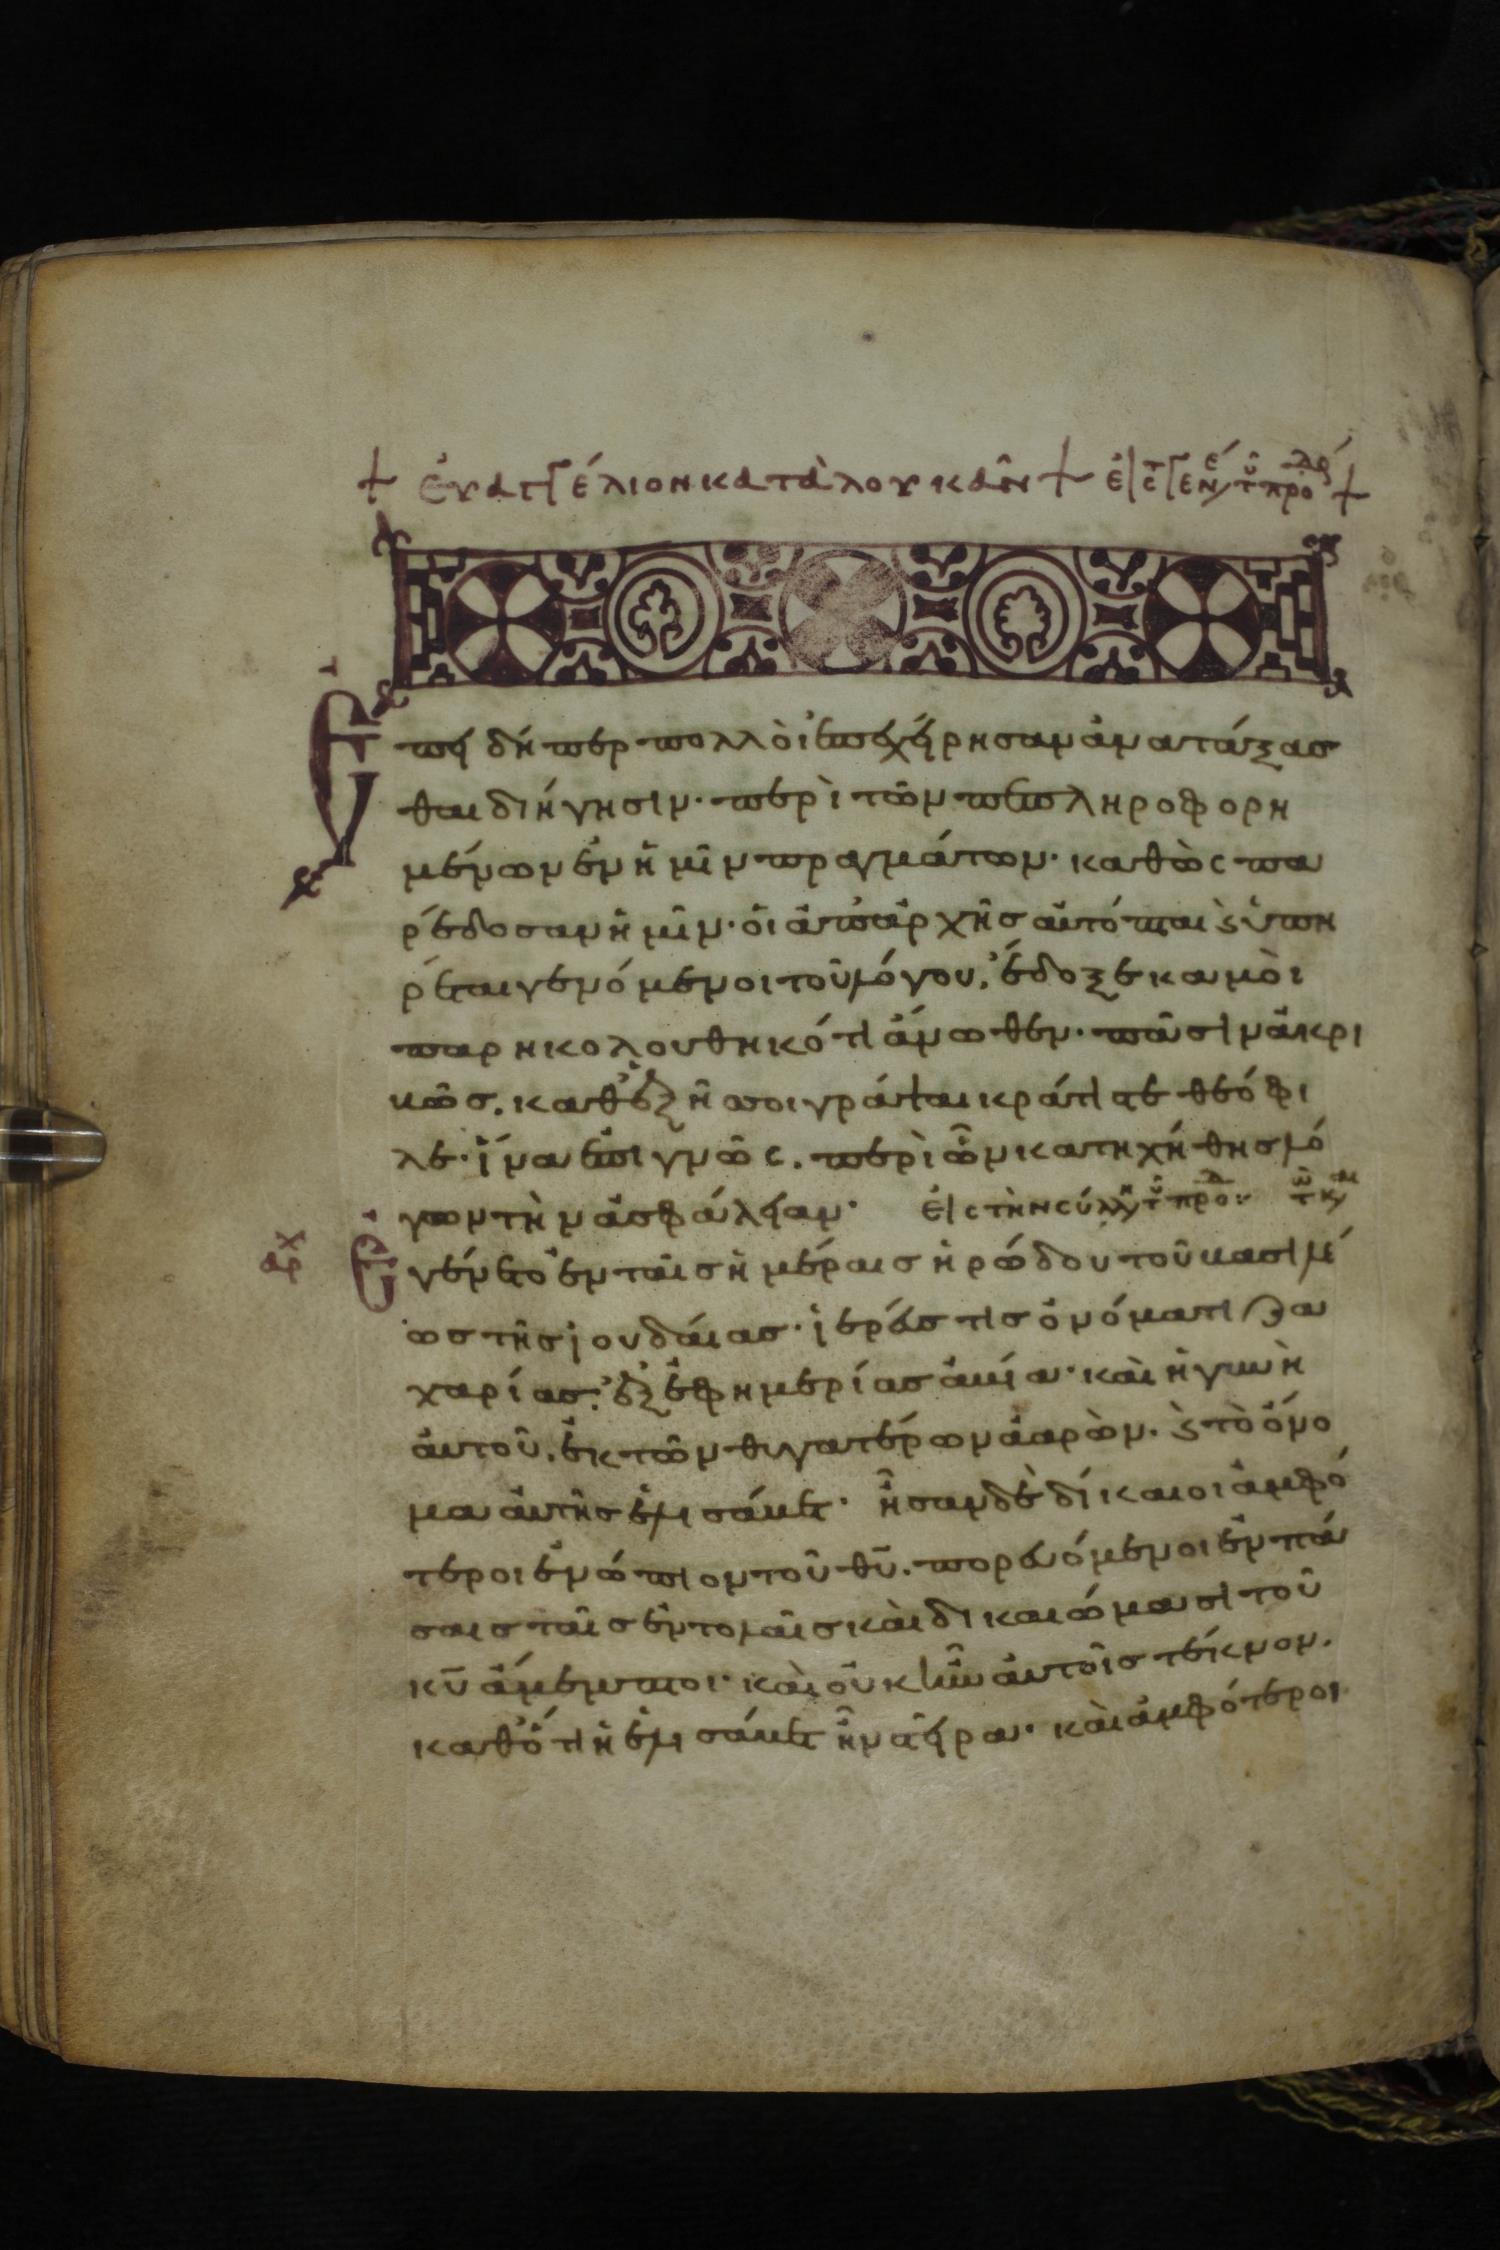 + ἐυαγγέλιον κατὰ λουκᾶν + ἐις τ γεν τ προ +
Ἐπειδήπερ πολλὸι ἐπεχείρησαν ἀνατάξασ
θαι διήγησιν· περὶ τῶν πεπληροφορη
μένων ἐν ἡμῖν πραγμάτων· καθὼς πα
ρέδοσαν ἡμῖν· ὁι ἀπαρχῆσ ἀυτόπται ϗ ὑπη
ρέται γενόμενοι τοῦ λόγου, ἔδοξε καμὸι
παρηκολουθηκότι ἄνωθεν· πᾶσιν ἀκρι
βῶσ, καθἐξῆσ σοι γράψαι κράτιστε θεόφι
λε· ἵνα ἐπιγνῶς, περὶ ὧν κατηχήθησ λό
γων τὴν ἀσφάλειαν· ἐις τὴν σύλλη τ προ
Ἐγένετο ἐν ταῖσ ἡμέραισ ἡρώδου τοῦ βασιλέ
ωσ τῆσ ἰουδάιασ· ἱερέυσ τισ ὀνόματι ζα
χαρίασ· ἐξ ἐφημερίασ ἀβιά· κὰι ἡ γυνὴ
ἀυτοῦ, ἐκ τῶν θυγατέρων ἀαρὼν, ϗ τὸ ὄνο
μα ἀυτῆσ ἐλισάβετ· ἦσαν δὲ δίκαιοι ἀμφό
τεροι ἐνώπιον τοῦ θυ, πορευόμενοι ἐν πά
σαισ ταῖσ ἐντολαῖσ κὰι δικαιώμασι τοῦ
κυ ἄμεμπτοι· κὰι ὀυκ ἦν ἀυτοῖσ τέκνον,
καθότι ἡ ἐλισάβετ ἦν στεῖρα· κὰι ἀμφότεροι